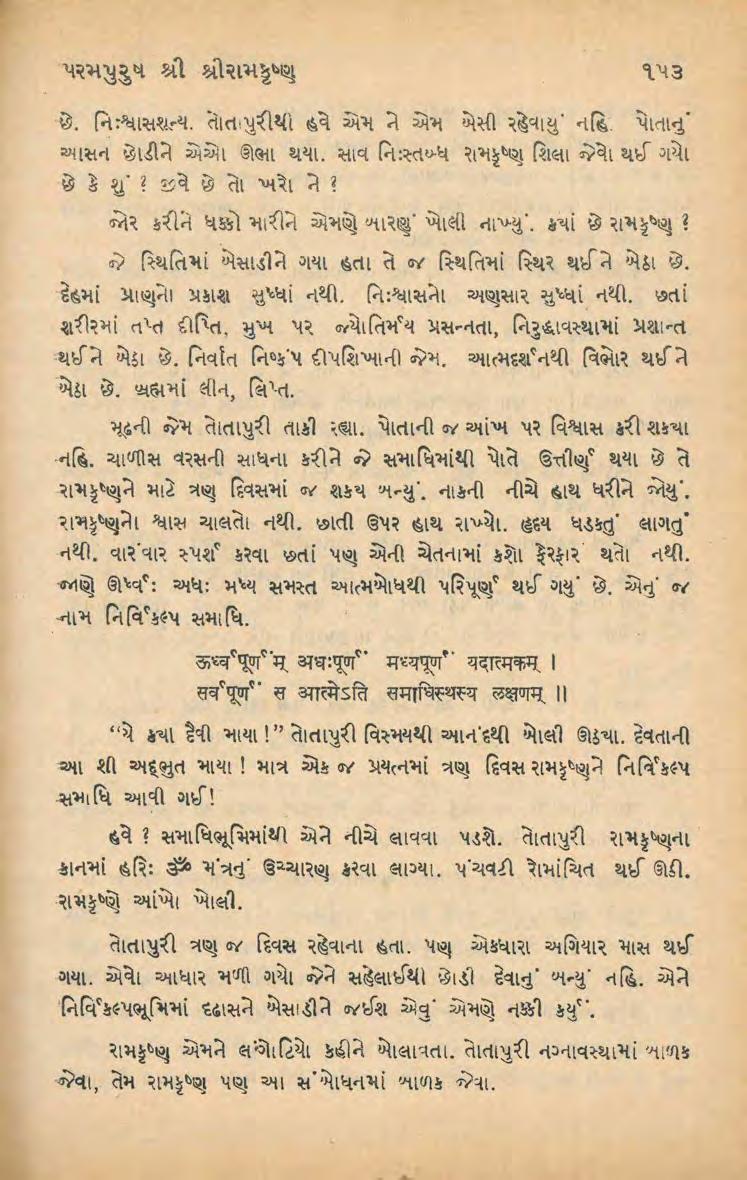 પરમપુરુષ શ્રી શ્રીરામકૃષ્ણ ૧૫૩
છે. નિઃશ્વાસશૂન્ય. તોતાપુરીથી હવે એમ ને એમ બેસી રહેવાયું નહિ. પોતાનું
આસન છોડીને એઓ ઊભા થયા. સાવ નિઃસ્તબ્ધ રામકૃષ્ણ શિલા જેવો થઈ ગયો
છે કે શું ? જીવે છે તો ખરો ને ?
જોર કરીને ધક્કો મારીને એમણે બારણું ખોલી નાખ્યું. કયાં છે રામકૃષ્ણ ?
જે સ્થિતિમાં બેસાડીને ગયા હતા તે જ સ્થિતિમાં સ્થિર થઈને બેઠા છે.
દેહમાં પ્રાણનો પ્રકાશ સુધ્ધાં નથી. નિઃશ્વાસનો અણસાર સુધ્ધાં નથી. છતાં
શરીરમાં તપ્ત દીપ્તિ, મુખ પર જ્યોતિર્મય પ્રસન્નતા, નિરુદ્ધાવસ્થામાં પ્રશાન્ત
થઈને બેઠા છે. નિર્વાત નિષ્કંપ દીપશિખાની જેમ. આત્મદર્શનથી વિભોર થઈને
બેઠા છે. બ્રહ્મમાં લીન, લિપ્ત.
મૂઢની જેમ તોતાપુરી તાકી રહ્યા. પોતાની જ આંખ પર વિશ્વાસ કરી શકયા
નહિ. ચાળીસ વરસની સાધના કરીને જે સમાધિમાંથી પોતે ઉત્તીર્ણ થયા છે તે
રામકૃષ્ણને માટે ત્રણ દિવસમાં જ શકય બન્યું. નાકની નીચે હાથ ધરીને જોયું.
રામકૃષ્ણનો શ્વાસ ચાલતો નથી. છાતી ઉપર હાથ રાખ્યો. હૃદય ધડકતું લાગતું
નથી. વારંવાર સ્પર્શ કરવા છતાં પણ એની ચેતનામાં કશો ફેરફાર થતો નથી.
જાણે ઊર્ધ્વઃ અધઃ મધ્ય સમસ્ત આત્મબોધથી પરિપૂર્ણ થઈ ગયું છે. એનું જ
નામ નિર્વિકલ્પ સમાધિ.
ऊर्ध्वपूर्णम् अधःपूर्णं मध्यपूर्णं यदात्मकम् ।
सर्वपूर्णं स आत्मेऽति समाधिस्थस्य लक्षणम् ॥
“યે કયા દૈવી માયા !” તોતાપુરી વિસ્મયથી આનંદથી બોલી ઊઠયા. દેવતાની
આ શી અદ્દભુત માયા ! માત્ર એક જ પ્રયત્નમાં ત્રણ દિવસ રામકૃષ્ણને નિર્વિકલ્પ
સમાધિ આવી ગઈ !
હવે ? સમાધિભૂમિમાંથી એને નીચે લાવવા પડશે. તોતાપુરી રામકૃષ્ણના
કાનમાં હરિઃ ૐ મંત્રનું ઉચ્ચારણ કરવા લાગ્યા. પંચવટી રોમાંચિત થઈ ઊઠી.
રામકૃષ્ણે આંખો ખોલી.
તોતાપુરી ત્રણ જ દિવસ રહેવાના હતા. પણ એકધારા અગિયાર માસ થઈ
ગયા. એવો આધાર મળી ગયો જેને સહેલાઈથી છોડી દેવાનું બન્યું નહિ. એને
નિર્વિકલ્પભૂમિમાં દૃઢાસને બેસાડીને જઈશ એવું એમણે નક્કી કર્યું.
રામકૃષ્ણ એમને લંગોટિયો કહીને બોલાવતા. તોતાપુરી નગ્નાવસ્થામાં બાળક
જેવા, તેમ રામકૃષ્ણ પણ આ સંબોધનમાં બાળક જેવા.